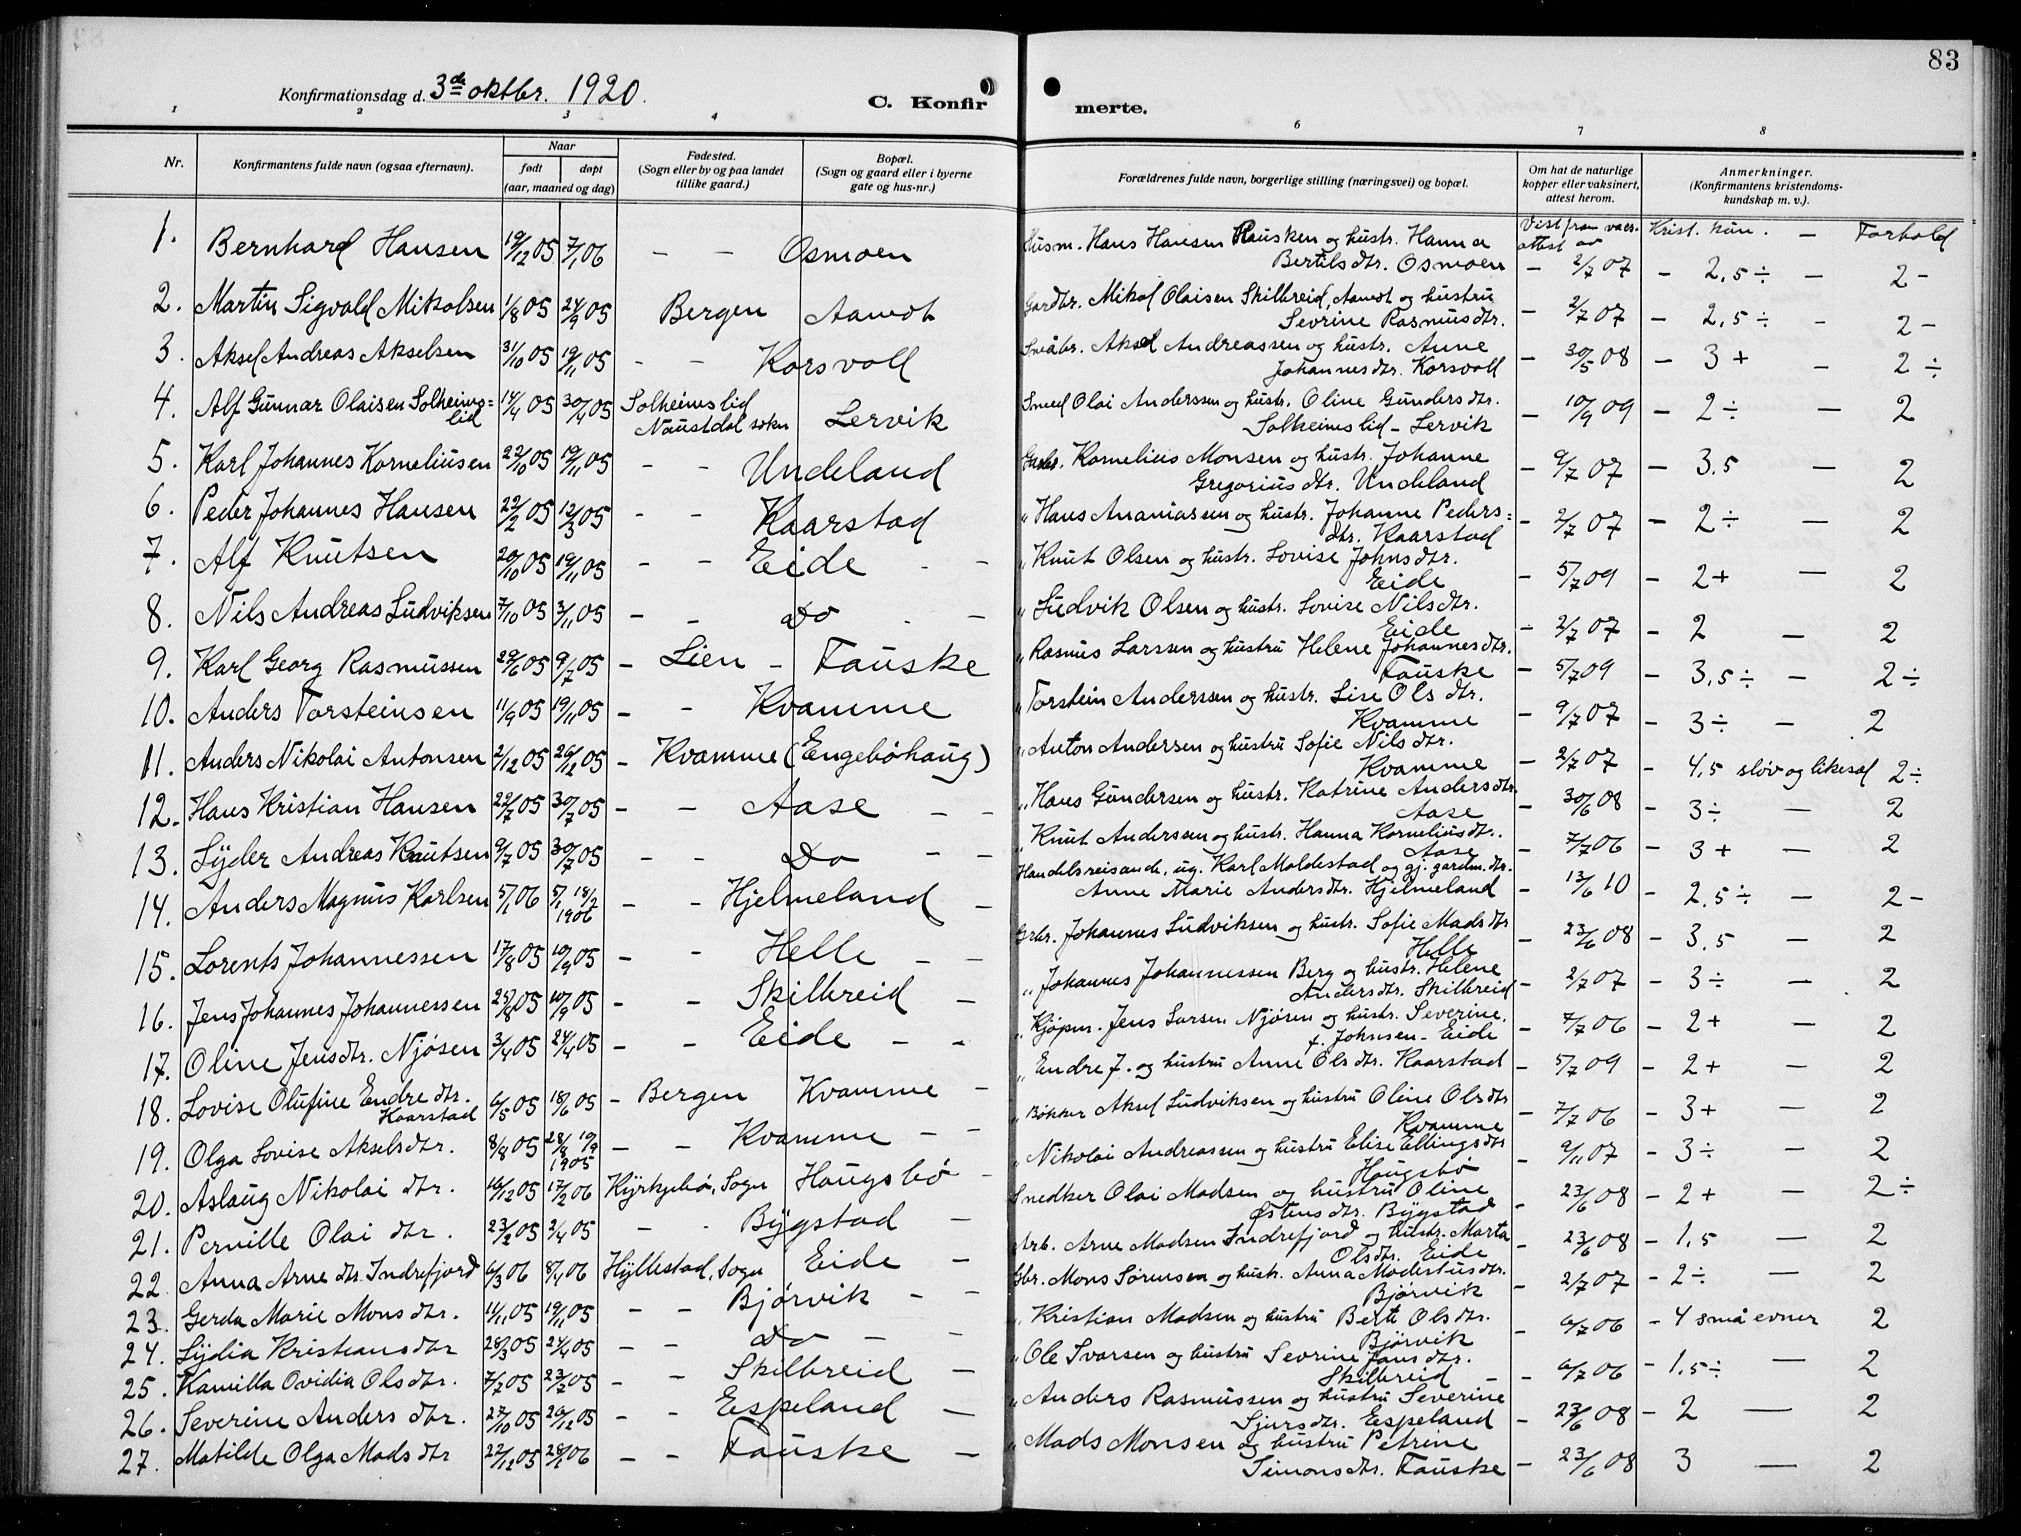 83
Konfirmationsdag d. 3de oktbr. 1920.
C. Konfirmerte.
1 2 3 4 6 7 8
Nr. Konfirmantens fulde navn (ogsaa efternavn). Naar født døpt (aar, maaned og dag) Fødested. (Sogn eller by og paa landet tillike gaard.) Bopæl. (Sogn og gaard eller i byerne gate og hus-nr.) Forældrenes fulde navn, borgerlige stilling (næringsvei) og bopæl. Om hat de naturlige kopper eller vaksinert, attest herom. Anmerkninger. (Konfirmantens kristendomskundskap m. v.).
Vist fram vacs. attest av Krist. kun. – Forhold
1. Bernhard Hansen 19/12 05 7/1 06 – – Osmoen Husm. Hans Hansen Hausken og hustr. Hanna Bertilsdtr. Osmoen – 2/7 07 – 2,5 ÷ – 2 –
2. Martin Sigvald Mikalsen 1/8 05 24/9 05 Bergen Aamot Gardbr. Mikal Olaisen Skilbreid, Aamot og hustru Sevrine Rasmusdtr. – 2/7 07 – 2,5 ÷ – 2 –
3. Aksel Andreas Akselsen 31/10 05 19/11 05 – – Korsvoll Småbr. Aksel Andreassen og hustr. Anne Johannesdtr. Korsvoll – 30/5 08 – 3 + – 2 ÷
4. Alf Gunnar Olaisen Solheimslid 14/4 05 30/4 05 Solheimslid Naustdal sokn Lervik Smed Olai Anderssen og hustr. Oline Gundersdtr. Solheimslid – Lervik – 10/9 09 – 2 ÷ – 2
5. Karl Johannes Korneliusen 22/10 05 19/11 05 – – Undeland Kornelius Monsen og hustr. Johanne Gregoriusdtr. Undeland – 9/7 07 – 3,5 – 2
6. Peder Johannes Hansen 22/2 05 12/3 05 – – Kaarstad " Hans Ananiassen og hustr. Johanne Pedersdtr. Kaarstad – 2/7 07 – 2 ÷ – 2
7. Alf Knutsen 20/10 05 19/11 05 – – Eide – – " Knut Olsen og hustr. Lovise Johnsdtr. Eide – 5/7 09 – 2 + – 2
8. Nils Andreas Ludviksen 7/10 05 3/11 05 – – Do – – " Ludvik Olsen og hustr. Lovise Nilsdtr. Eide – 2/7 07 – 2 – 2
9. Karl Georg Rasmussen 29/6 05 9/7 05 – Lien – Fauske " Rasmus Larssen og hustru Helene Johannesdtr. Fauske – 5/7 09 – 3,5 ÷ – 2 ÷
10. Anders Torsteinsen 11/9 05 19/11 05 – – Kvamme " Torstein Anderssen og hustr. Lise Olsdtr. Kvamme – 9/7 07 – 3 ÷ – 2
11. Anders Nikolai Antonsen 2/12 05 26/12 05 – Kvamme (Engebøhaug) " Anton Andersen og hustru Sofie Nilsdtr. Kvamme – 2/7 07 – 4,5 sløv og likesæl 2 ÷
12. Hans Kristian Hansen 22/7 05 30/7 05 – – Aase – – " Hans Gundersen og hustr. Katrine Andersdtr. Aase – 30/6 08 – 3 ÷ – 2
13. Lyder Andreas Knutsen 9/7 05 30/7 05 – – Do – – " Knut Anderssen og hustr. Hanna Korneliusdtr. Aase – 7/7 06 – 3 + – 2
14. Anders Magnus Karlsen 5/1 06 5/1 18/2 1906 – – Hjelmeland – Handelsreisande, ug. Karl Moldestad og gj. gardm. dtr. Anne Marie Andersdtr. Hjelmeland – 13/6 10 – 2,5 ÷ – 2 –
15. Lorents Johannessen 17/8 05 10/9 05 – – Helle – – Grbr. Johannes Ludviksen og hustr. Sofie Madsdtr Helle – 23/6 08 – 3,5 – 2
16. Jens Johannes Johannessen 25/8 05 10/9 05 – – Skilbreid – " Johannes Johannessen Berg og hustr. Helene Andersdtr. Skilbreid – 2/7 07 – 3 ÷ – 2
17. Oline Jensdtr. Njøsen 3/4 05 24/4 05 – – Eide – – " Kjøpm. Jens Larsen Njøsen og hustr. Severine, f. Johnsen – Eide – 7/7 06 – 2 + – 2
18. Lovise Olufine Endredtr. Kaarstad 6/5 05 18/6 05 – Bergen Kvamme – " Endre J. og hustru Anne Olsdtr. Kaarstad – 5/7 09 – 2 + – 2
19. Olga Lovise Akselsdtr. 8/8 05 28/8 10/9 1905 – – Kvamme – – " Bøkker Aksel Ludviksen og hustru Oline Olsdtr Kvamme – 7/7 06 – 3 + – 2
20. Aslaug Nikolaidtr. 16/12 05 17/2 06 Kyrkjebø, Sogn Haugsbø – " Nikolai Andreassen og hustru Elise Ellingsdtr Haugsbø – 9/11 07 – 3 ÷ – 2
21. Pernille Olaidtr. 23/2 05 2/4 05 – – Bygstad – Snedker Olai Madsen og hustru Oline Østensdtr. Bygstad – 23/6 08 – 2 + – 2 ÷
22. Anna Arnedtr. Indrefjord 6/3 06 8/4 06 Hyllestad, Sogn Eide – Arb. Arne Madsen Indrefjord og hustr. Marta Olsdtr. Eide – 23/6 08 – 1,5 – 2
23. Gerda Marie Monsdtr. 14/11 05 19/11 05 – – Bjørvik – – Gbr. Mons Sørensen og hustr. Anna Modestusdtr. Bjørvik – 2/7 07 – 2 ÷ – 2
24. Lydia Kristiansdtr 28/3 05 24/4 05 – – Do – – " Kristian Madsen og hustru Berte Olsdtr. Bjørvik – 6/7 06 – 4 små evner 2
25. Kamilla Ovidia Olsdtr. 7/7 05 23/7 05 – – Skilbreid – " Ole Ivarsen og hustru Sevrine Jansdtr. Skilbreid – 6/7 06 – 1,5 ÷ – 2
26. Severine Andersdtr. 27/10 05 26/12 05 – – Espeland – " Anders Rasmussen og hustru Severine Sjursdtr. Espeland – 23/6 08 – 2 – 2
27. Matilde Olga Madsdtr 22/12 05 28/1 06 – – Fauske – " Mads Monsen og hustru Petrine Simonsdtr. Fauske – 23/6 08 3 – 2